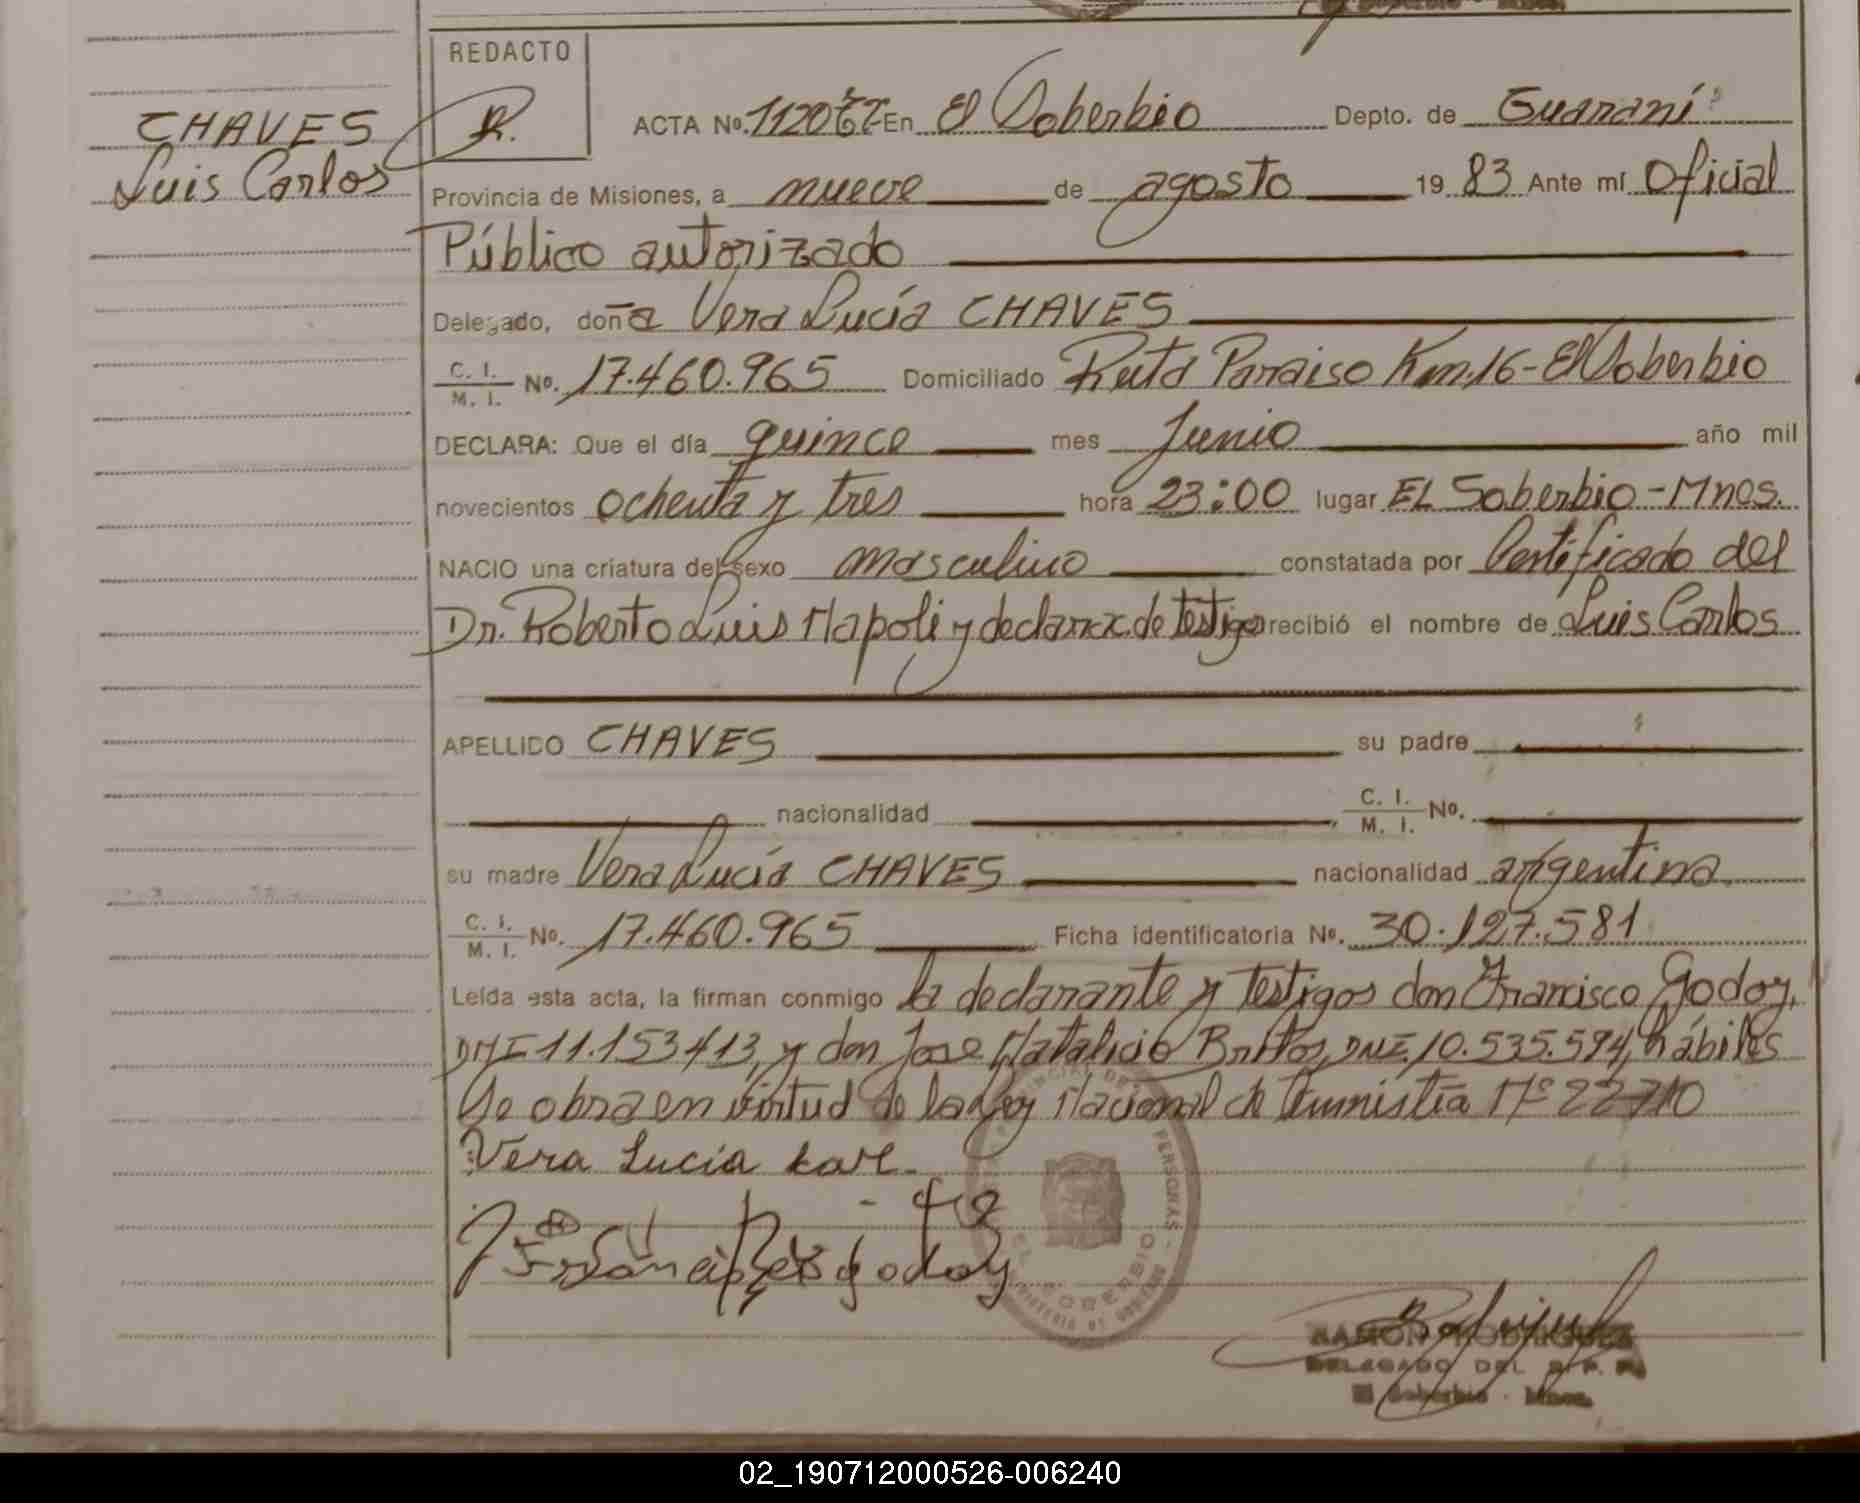 REDACTO
R.
CHAVES
Luis Carlos
ACTA No. 1120 En El Soberbio Depto. de Guaraní
Provincia de Misiones, a nueve de agosto 19 83 Ante mí Oficial
Público autorizado
Delegado, doña Vera Lucía CHAVES
C. I. / M. I. No. 17.460.965 Domiciliado Ruta Paraiso Km.16-El Soberbio
DECLARA: Que el día quince mes Junio año mil
novecientos ochenta y tres hora 23:00 lugar EL Soberbio-Mnes.
NACIO una criatura del sexo masculino constatada por Certificado del
Dr. Roberto Luis Napoli y declarac. de testigo recibió el nombre de Luis Carlos
APELLIDO CHAVES su padre
nacionalidad C. I. / M. I. No.
su madre Vera Lucía CHAVES nacionalidad argentina
C. I. / M. I. No. 17.460.965 Ficha identificatoria No. 30.127.581
Leída esta acta, la firman conmigo la declarante y testigos don Francisco Godoy,
DNI 11.153413, y don Jose Natalicio Brittos, DNI. 10.535.594, hábiles
Se obra en virtud de la Ley Nacional de Amnistía Nº 22710
Vera Lucia
godoy
PERSONAS
EL SOBERBIO
RAMON RODRIGUEZ
DELEGADO DEL R. P. P.
El Soberbio - Mnes.
02_190712000526-006240